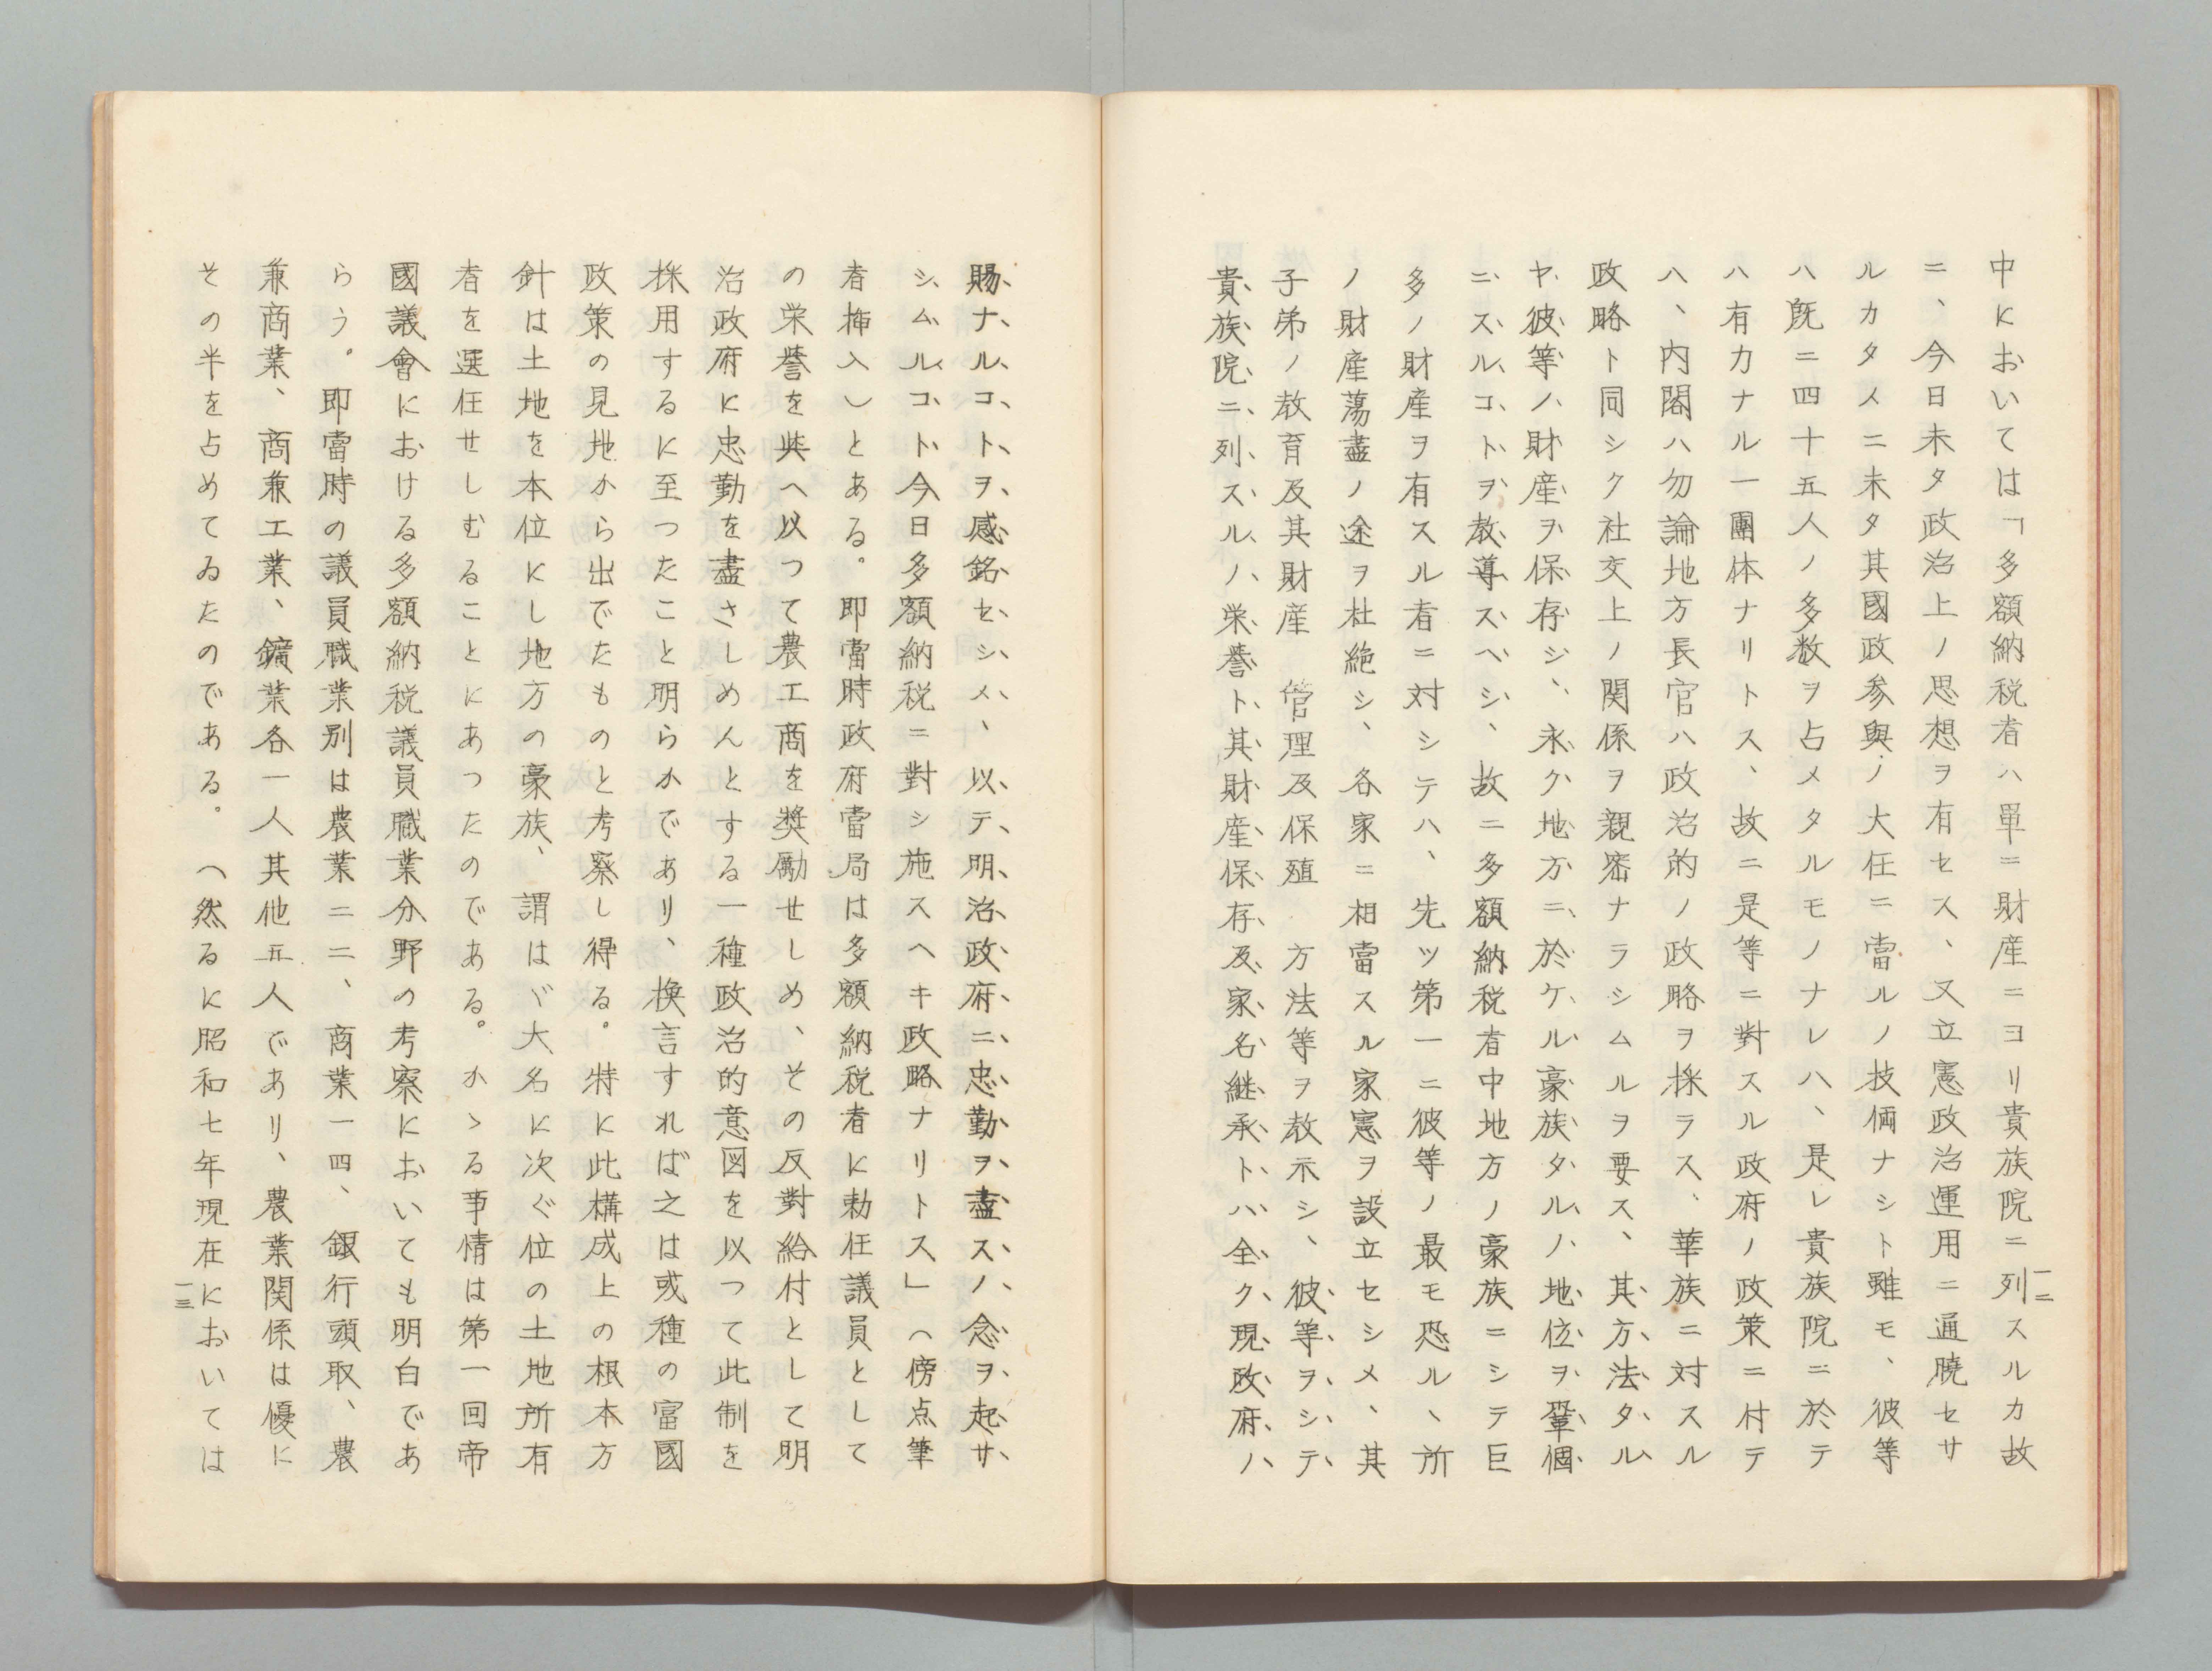 中においては「多額納税者ハ單ニ財産ニヨリ貴族院ニ列スルカ故
ニ、今日未タ政治上ノ思想ヲ有セス、又立憲政治運用ニ通曉セサ
ルカタメニ未タ其國政参與ノ大任ニ當ルノ技倆ナシト雖モ、彼等
ハ既ニ四十五人ノ多数ヲ占メタルモノナレハ、是レ貴族院ニ於テ
ハ有力ナル一團体ナリトス、故ニ是等ニ對スル政府ノ政策ニ村テ
ハ、内閣ハ勿論地方長官ハ政治的ノ政略ヲ採ラス、華族ニ対スル
政略ト同シク社交上ノ関係ヲ親密ナラシムルヲ要ス、其方法タル
ヤ彼等ノ財産ヲ保存シ、永ク地方ニ於ケル豪族タルノ地位ヲ鞏個
ニスルコトヲ教導スヘシ、故ニ多額納税者中地方ノ豪族ニシテ巨
多ノ財産ヲ有スル者ニ対シテハ、先ツ第一ニ彼等ノ最モ恐ル、所
ノ財産蕩盡ノ途ヲ杜絶シ、各家ニ相當スル家憲ヲ設立セシメ、其
子弟ノ教育及其財産 管理及保殖 方法等ヲ教示シ、彼等ヲシテ
貴族院ニ列スルノ栄誉ト其財産保存及家名継承トハ全ク現政府ノ
一二
賜ナルコトヲ感銘セシメ、以テ明治政府ニ忠勤ヲ盡スノ念ヲ起サ
シムルコト今日多額納税ニ對シ施スヘキ政略ナリトス」（傍点筆
者挿入）とある。即當時政府當局は多額納税者に勅任議員として
の栄誉を与へ以つて農工商を奨勵せしめ、その反對給付として明
治政府に忠勤を盡さしめんとする一種政治的意図を以つて此制を
採用するに至つたこと明らかであり、換言すれば之は或種の富國
政策の見地から出でたものと考察し得る。特に此構成上の根本方
針は土地を本位にし地方の豪族、謂はゞ大名に次ぐ位の土地所有
者を選任せしむることにあつたのである。かゝる事情は第一回帝
國議會における多額納税議員職業分野の考察においても明白であ
らう。即當時の議員職業別は農業二二、商業一四、銀行頭取、農
兼商業、商兼工業、鑛業各一人其他五人であり、農業関係は優に
その半を占めてゐたのである。（然るに昭和七年現在においては
一三